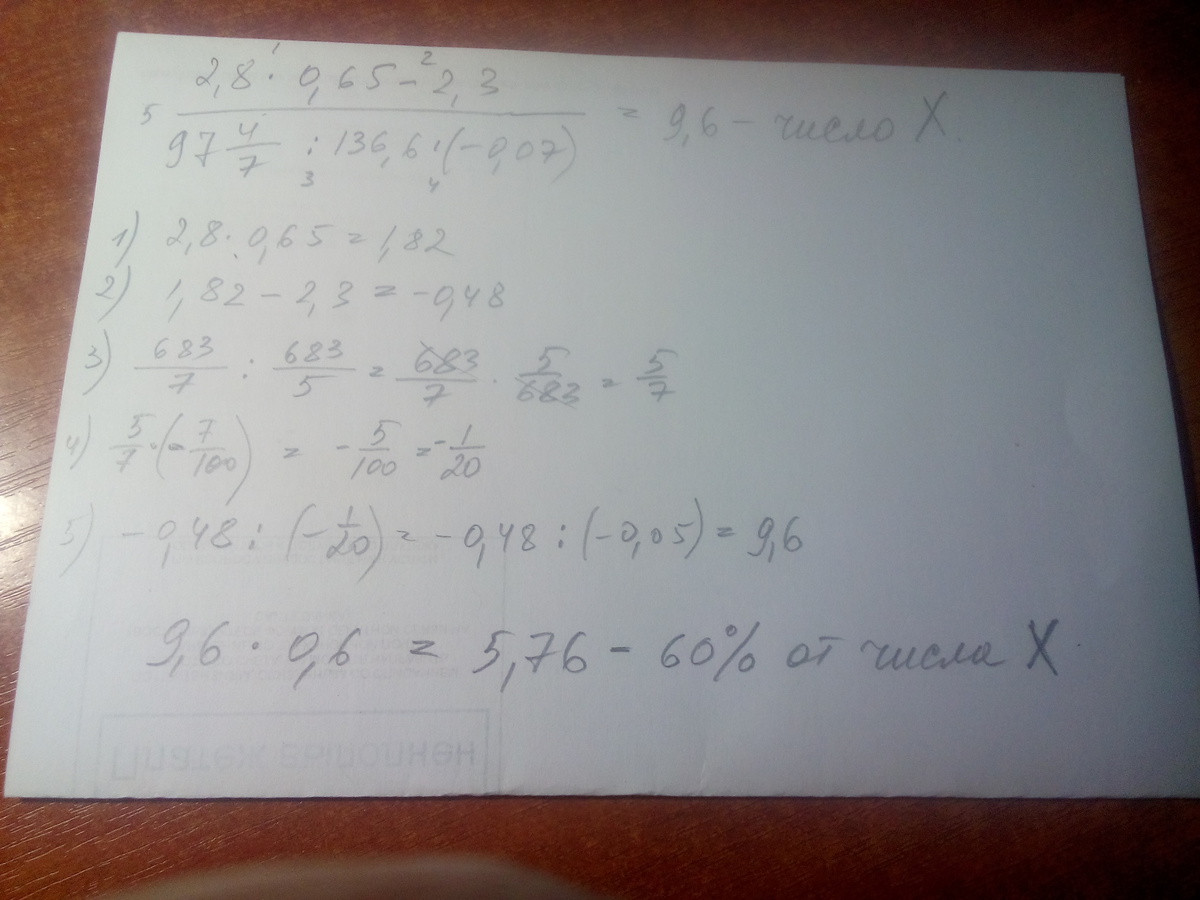 2,8 · 0,65 - 2,3
97 4/7 : 136,6 · (-0,07)
= 9,6 - число X.
1) 2,8 · 0,65 = 1,82
2) 1,82 - 2,3 = -0,48
3) 683/7 : 683/5 = 683/7 · 5/683 = 5/7
4) 5/7 · (-7/100) = -5/100 = -1/20
5) -0,48 : (-1/20) = -0,48 : (-0,05) = 9,6
9,6 · 0,6 = 5,76 - 60% от числа X
Платеж выполнен